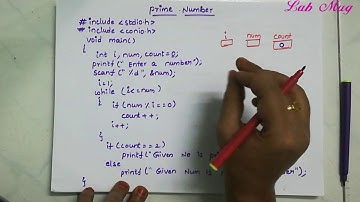 Lab Mug
Prime Number
# include <stdio.h>
# include <conio.h>
void main()
{
int i, num, count=0;
printf(" Enter a number");
scanf(" %d", &num);
i=1;
while (i<=num)
{
if (num % i ==0)
count++;
i++;
}
if (count == 2)
printf(" Given No is
else
printf(" Given Num is
}
i num count
0